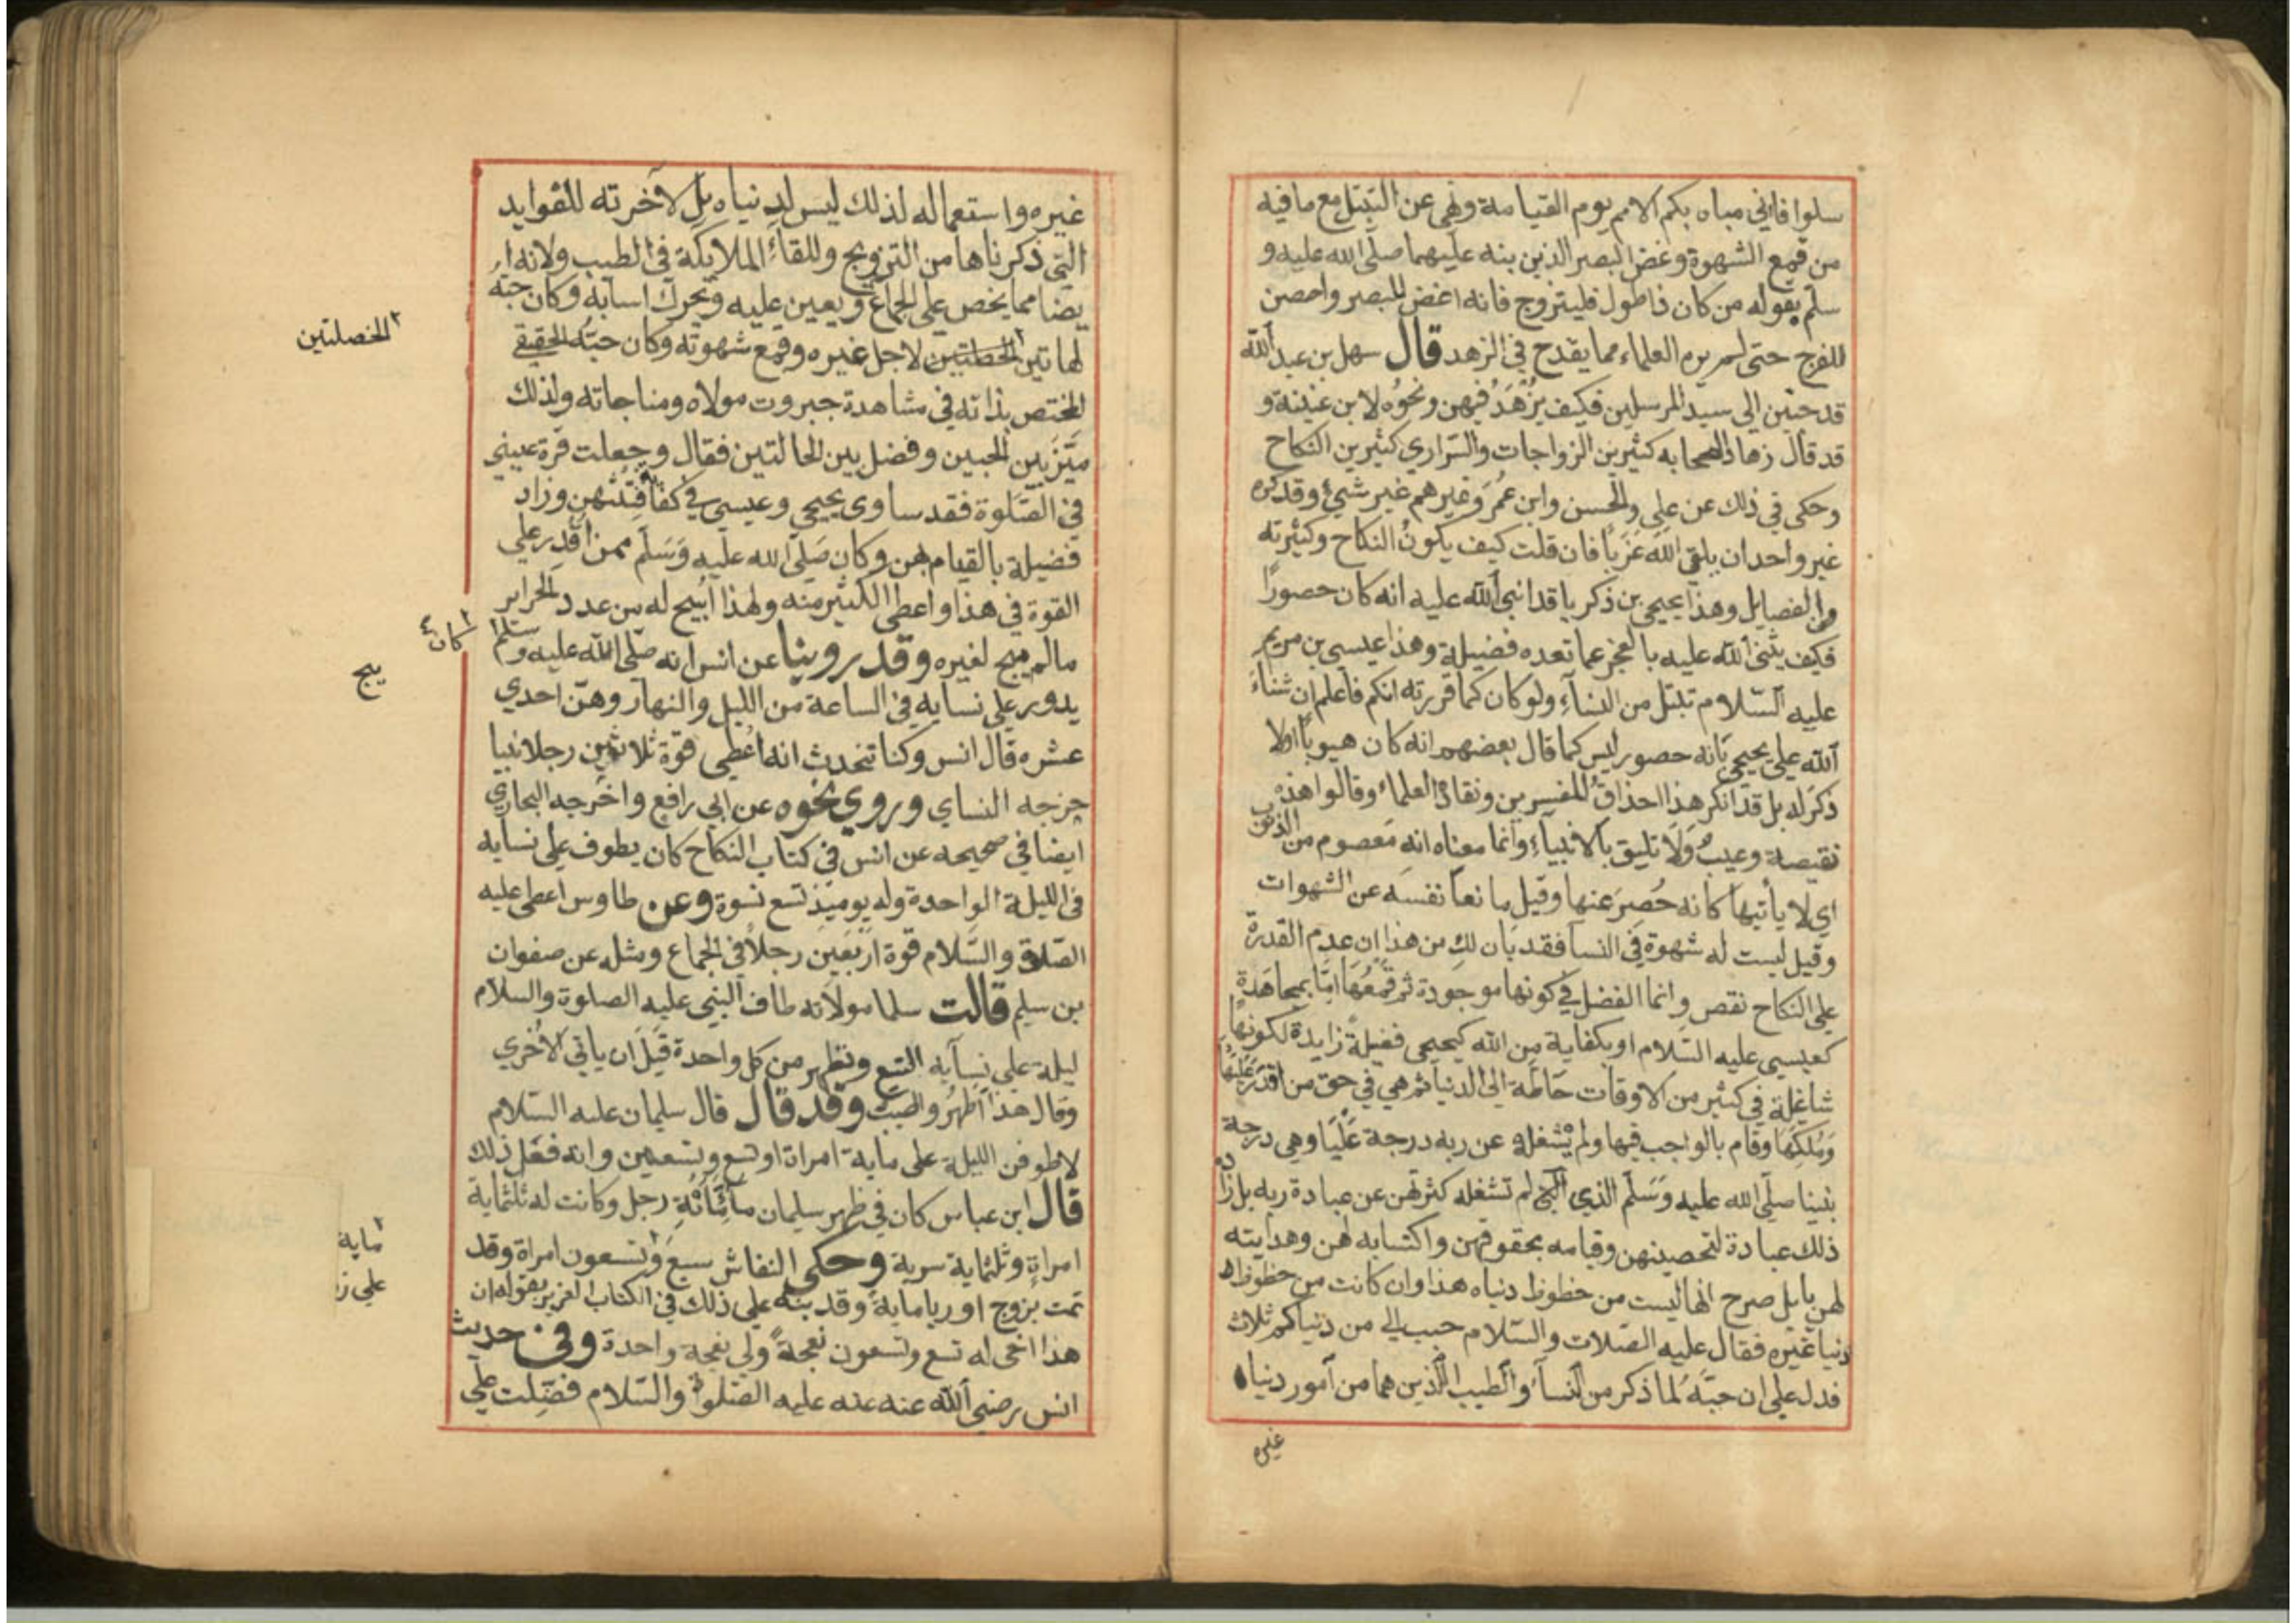 سلوا فاني مباه بكم الامم يوم القيامة ونهي عن التبتل مع ما فيه
من قمع الشهوة وغض البصر الذين بنه عليهما صلى الله عليه و
سلم بقوله من كان ذا طول فليتزوج فانه اغض للبصر واحصن
للفرج حتى لم يره العلماء مما يقدح في الزهد قال سهل بن عبد الله
قد حببن الى سيد المرسلين فكيف يُزْهَدُ فيهن ونحوُه لابن عيينة و
قد قال زهاد الصحابه كثيرين الزواجات والسَراري كثيرين النكاح
وحكي في ذلك عن علي والحسن وابن عُمَر وغيرهم غير شيئ وقد كره
غير واحد ان يلقى اللهَ عَزَبًا فان قلت كيف يكونُ النكاح وكثرته
من الفضايل وهذا يحيي بن ذكريا قد اثني الله عليه انه كان حصورًا
فكيف يثني الله عليه بالعجز عما تعده فضيلة وهذا عيسى بن مريم
عليه السّلام تبتل من النسآءِ ولو كان كما قررته انكم فاعلم ان ثناءَ
الله على يحيي بَانه حصور ليس كما قال بعضهم انه كان هيوبًا اولا
ذكرَ له بل قد انكر هذا احذاقُ المفسرين ونقادُ العلماء وقالوا هذه
نقيصة وعيبٌ وَلَا تليق بالانبياءِ وانما معناه انه مَعصوم من الذنوب
اي لا يأتيها كانه حُصِرَ عنها وقيل مانعًا نفسَه عن الشهوات
وقيل ليست له شهوة في النسا فقد بَان لك من هذا ان عدم القدرة
على النكاح نقص وانما الفضل في كونها موجودة ثم قَمْعُهَا امَّا بمجاهَدةٍ
كعيسى عليه السّلام او بكفاية من الله كيحيى فضيلةً زايدة لكونها
شاغلة في كثير من الاوقات حَاطَة الى الدنيا ثم هي في حق من اقدَرَ عَلَيهَا
وَمُلكِهَا وقام بالواجب فيها ولم يَشغله عن ربه درجة عَلْيَا وهي درجة
نبينا صلّى الله عليه وَسَلّم الذي لم تشغله كثرتهن عن عبادة ربه بل زاده
ذلك عبادة لتحصينهن وقيامه بحقوقهن واكتسابه لهن وهدايته
لهن بل صرح انها ليست من حظوظ دنياه هذا وان كانت من حظوظ
دنيا غيره فقال عليه الصّلات والسّلام حبب الي من دنياكم ثلاث
فدل على ان حبّهُ لما ذكر من النسآءِ والطيب اللذين هما من امور دنياه
غيره
غيره واستعماله لذلك ليس لدنياه بل لآخرته للفوايد
التي ذكرناها من التزويج وللقاءِ الملايكة في الطيب ولانه ا
يضا مما يخص على الجماع ويعين عليه ويحرك اسبابه وكان حبّه
لهاتين الخطتين لاجل غيره وقمع شهوته وكان حبّه الحقيقي
المختص بذاته في مشاهدة جبروت مولاه ومناجاته ولذلك
مَيَّزَ بين الحبين وفضل بين الحالتين فقال وجعلت قرة عيني
في الصّلوة فقد ساوى يحيي وعيسى في كفاية فتنتهن وزاد
فضيلة بالقيام بهن وكان صَلّى الله عليه وَسَلّم ممن اقدر على
القوة في هذا واعطى الكثير منه ولهذا ابيح له من عدد الحراير
مالم يبج لغيره وقد روينا عن انس انه صلّى الله عليه وسلّم
يدور على نسايه في الساعة من الليل والنهار وهنّ احدي
عشره قال انس وكنا نتحدث انه اُعطي قوّة ثلاثين رجلا نبيا
خرجه النساي وروي نحوه عن ابي رافع واخرجه البخاري
ايضا في صحيحه عن انس في كتاب النكاح كان يطوف على نسايه
في الليلة الواحدة وله يوميذ تسع نسوة وعن طاوس اعطى عليه
الصّلوة والسّلام قوة اربَعِين رجلاً في الجماع ومثله عن صفوان
بن سليم قالت سلما مولاته طاف النبي عليه الصلوة والسلام
ليلة على نسآيه التسع وتطهر من كل واحدة قبلَ ان ياتي الاخري
وقال هذا اَطهرُ واطيَب وقد قال قال سليمان عليه السّلام
لاطوفن الليلة على ماية امراة او تسع وتسعين وانه فعل ذلك
قال ابن عباس كان في ظهر سليمان ماءُ مائةِ رجل وكانت له ثلثماية
امراةٍ وثلثماية سرية وحكى النقاش سبعَ وتسعون امراة وقد
تمت بزوج اوريا مايةً وقد بنّه على ذلك في الكتاب العزيز بقوله ان
هذا اخى له تسع وتسعون نعجةً ولي نعجة واحدة وفي حديث
انس رضي الله عنه عنه عليه الصّلوة والسّلام فضّلت على
الخصلتين
كان
يبج
ماية
علي